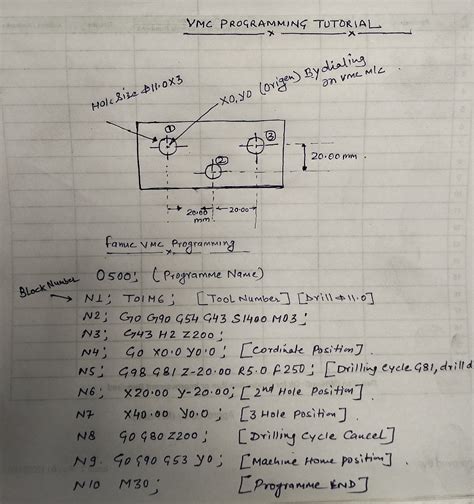 VMC PROGRAMMING TUTORIAL
Hole Size φ11.0X3
X0,Y0 (Origen) By dialing
on VMC M/c
①
②
③
20.00 mm
20.00
mm
20.00
fanuc VMC Programming
O500; (Programme Name)
Block Number
N1; T01M6; [Tool Number] [Drill φ11.0]
N2; G0 G90 G54 G43 S1400 M03;
N3; G43 H2 Z200;
N4; G0 X0.0 Y0.0; [Cordinate Position].
N5; G98 G81 Z-20.00 R5.0 F250; [Drilling Cycle G81, drill d
N6; X20.00 Y-20.00; [2nd Hole Position]
N7 X40.00 Y0.0; [3 Hole Position]
N8 G0 G80 Z200; [Drilling Cycle Cancel]
N9. G0 G90 G53 Y0; [Machine Home position]
N10 M30; [Programme END]